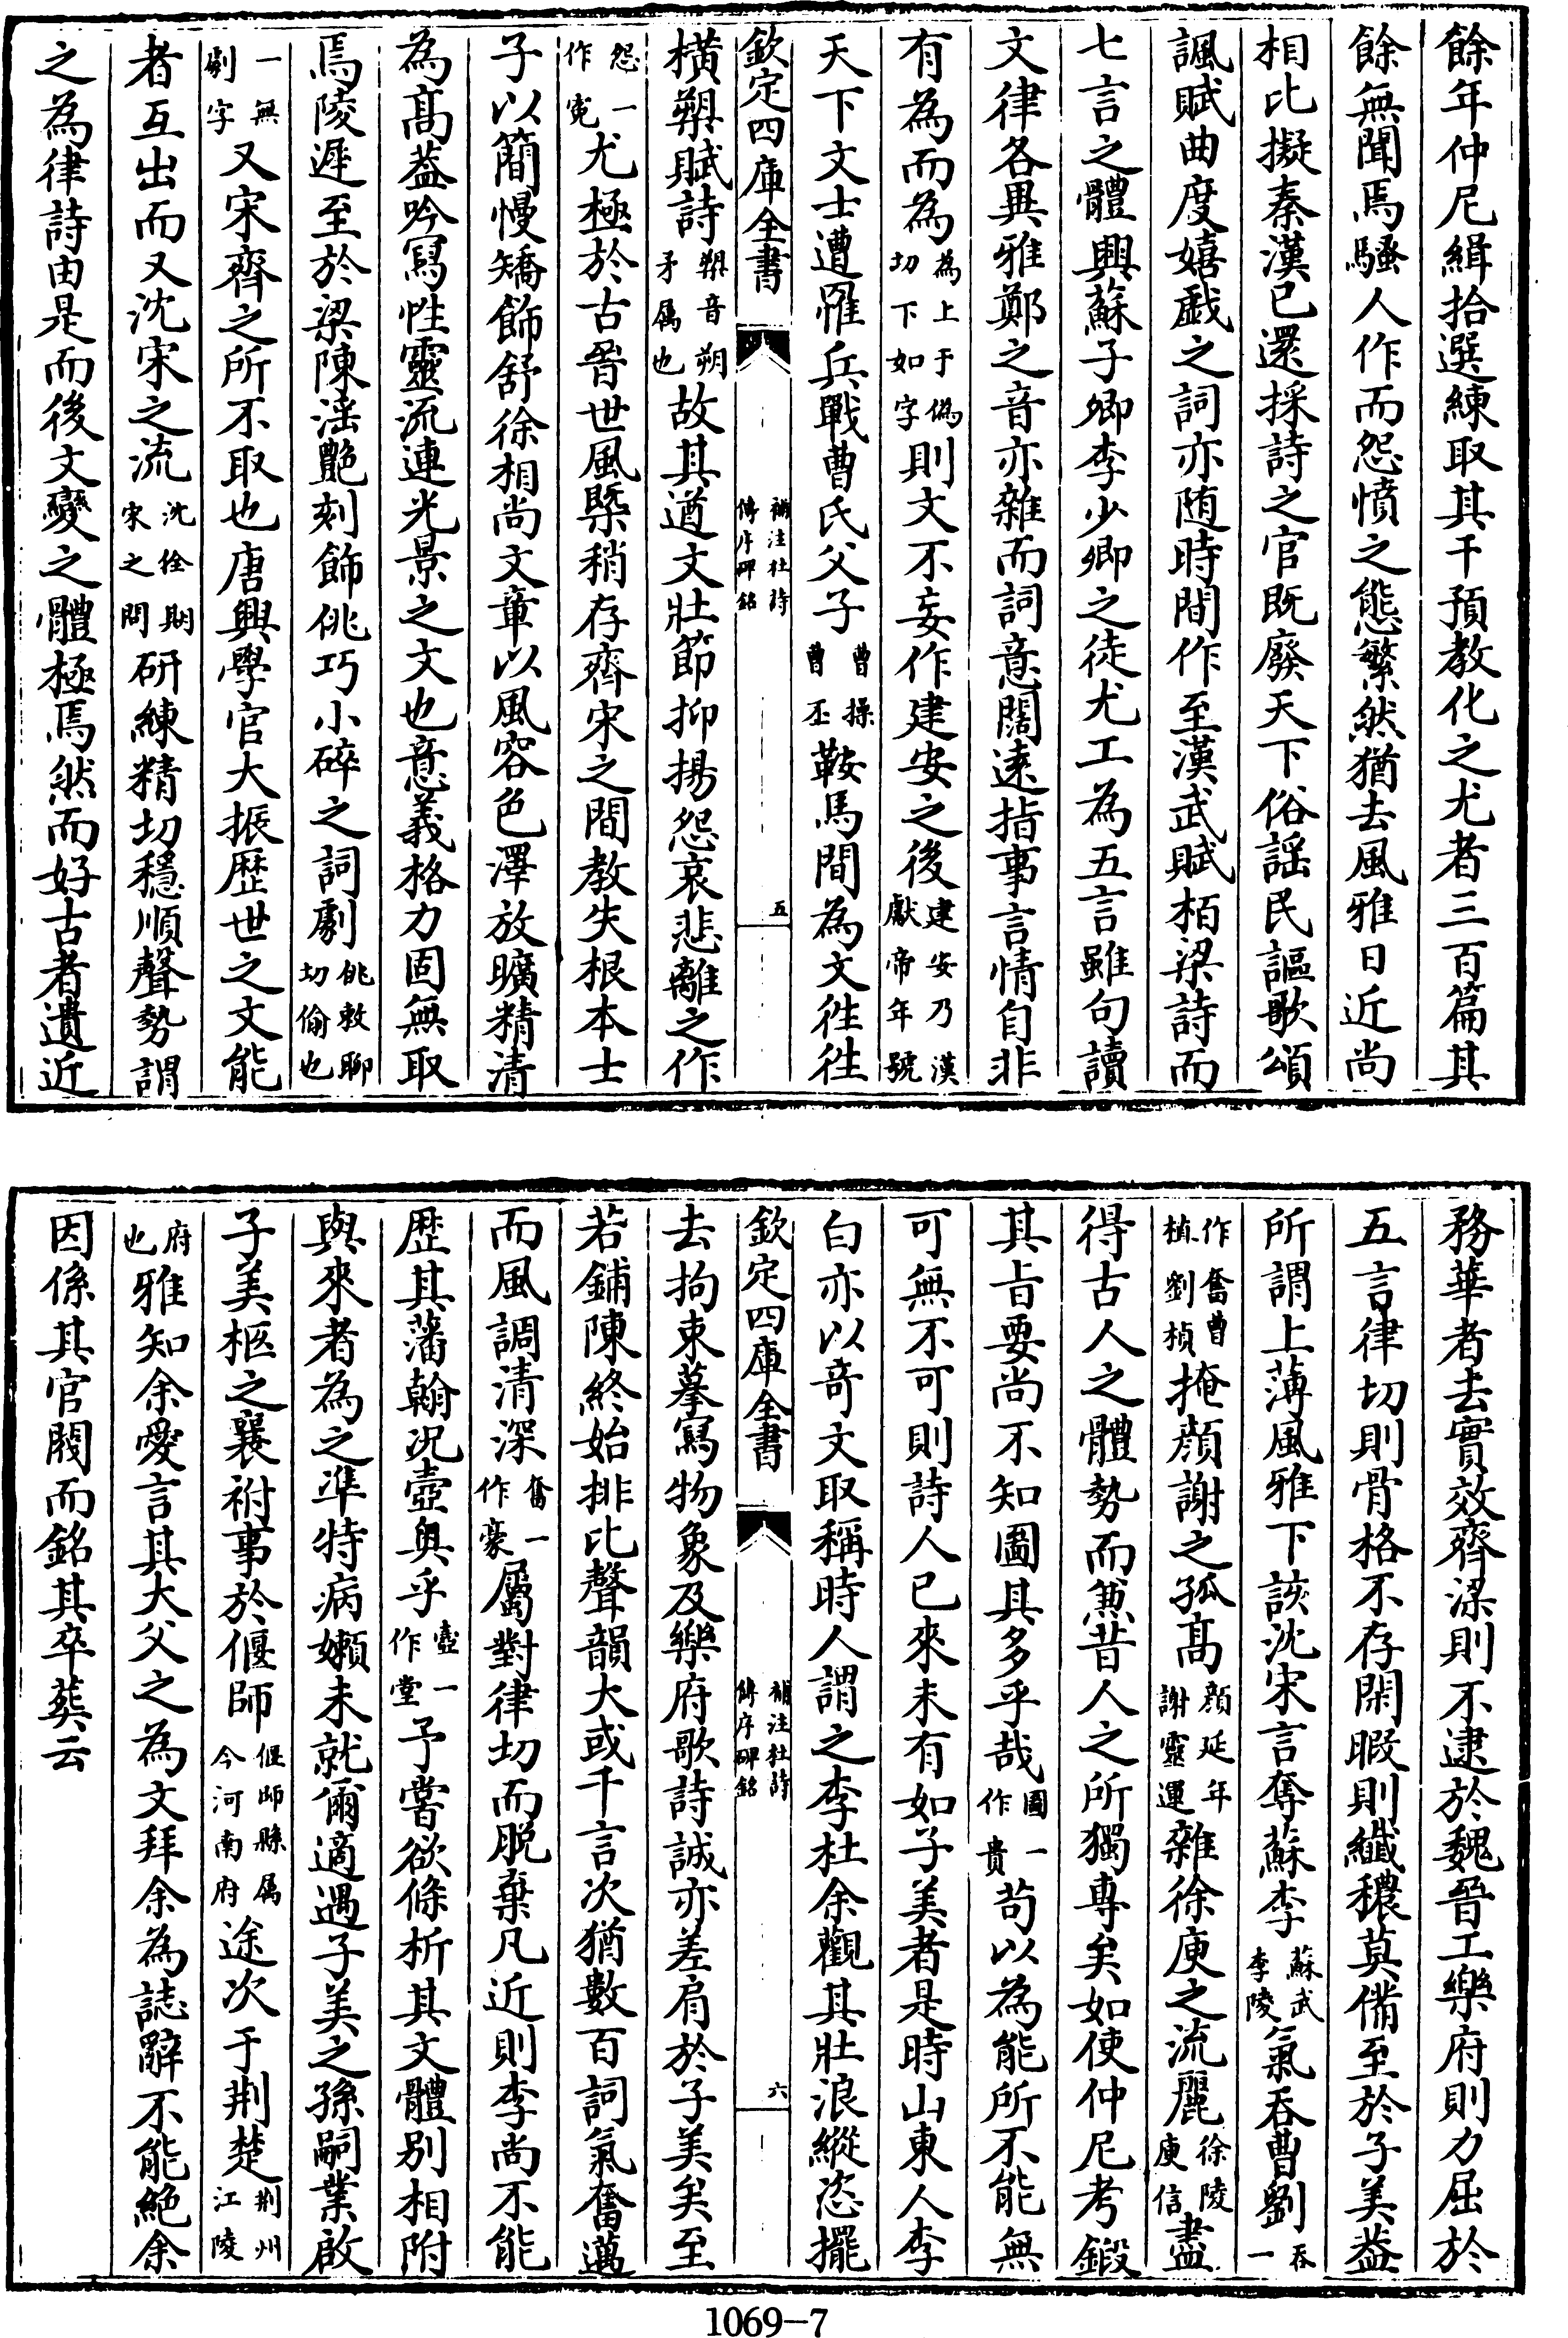 餘年仲尼緝拾選練取其干預教化之尤者三百篇其
餘無聞焉騷人作而怨憤之態繁然猶去風雅日近尚
相比擬秦漢已還採詩之官既廢天下俗謡民謳歌頌
諷賦曲度嬉戲之詞亦随時間作至漢武賦栢梁詩而
七言之體興蘇子卿李少卿之徒尤工為五言雖句讀
文律各異雅鄭之音亦雜而詞意闊逺指事言情自非
有為而為為上于偽切下如字則文不妄作建安之後建安乃漢獻帝年號
天下文士遭罹兵戰曹氏父子曹操曹丕鞍馬間為文徃徃
欽定四庫全書 補注杜詩傳序碑銘 五
橫槊賦詩槊音朔矛属也故其遒文壯節抑揚怨哀悲離之作
怨一作寃尤極於古晉世風槩稍存齊宋之間教失根本士
子以簡慢矯飾舒徐相尚文章以風容色澤放曠精清
為髙葢吟寫性靈流連光景之文也意義格力固無取
焉陵遲至於梁陳淫艶刻飾佻巧小碎之詞劇佻敕聊切偷也
一無劇字又宋齊之所不取也唐興學官大振歴世之文能
者互出而又沈宋之流沈佺期宋之問研練精切穩順聲勢謂
之為律詩由是而後文變之體極焉然而好古者遺近
務華者去實效齊梁則不逮於魏晉工樂府則力屈於
五言律切則骨格不存閑暇則纎穠莫備至於子美葢
所謂上薄風雅下該沈宋言奪蘇李蘇武李陵氣吞曹劉吞一
作奮曹植劉楨掩顔謝之孤髙顔延年謝靈運雜徐庾之流麗徐陵庾信盡
得古人之體勢而兼昔人之所獨專矣如使仲尼考鍛
其㫖要尚不知圖其多乎哉圖一作貴茍以為能所不能無
可無不可則詩人已來未有如子美者是時山東人李
白亦以竒文取稱時人謂之李杜余觀其壯浪縱恣擺
欽定四庫全書 補注杜詩傳序碑銘 六
去拘束摹寫物象及樂府歌詩誠亦差肩於子美矣至
若鋪陳終始排比聲韻大或千言次猶數百詞氣奮邁
而風調清深奮一作豪屬對律切而脱棄凡近則李尚不能
歴其藩翰况壺奥乎壼一作堂予嘗欲條析其文體别相附
與來者為之凖特病嬾未就爾適遇子美之孫嗣業啟
子美柩之襄祔事於偃師偃師縣属今河南府途次于荆楚荆州江陵
府也雅知余愛言其大父之為文拜余為誌辭不能絶余
因係其官閥而銘其卒葬云
1069-7